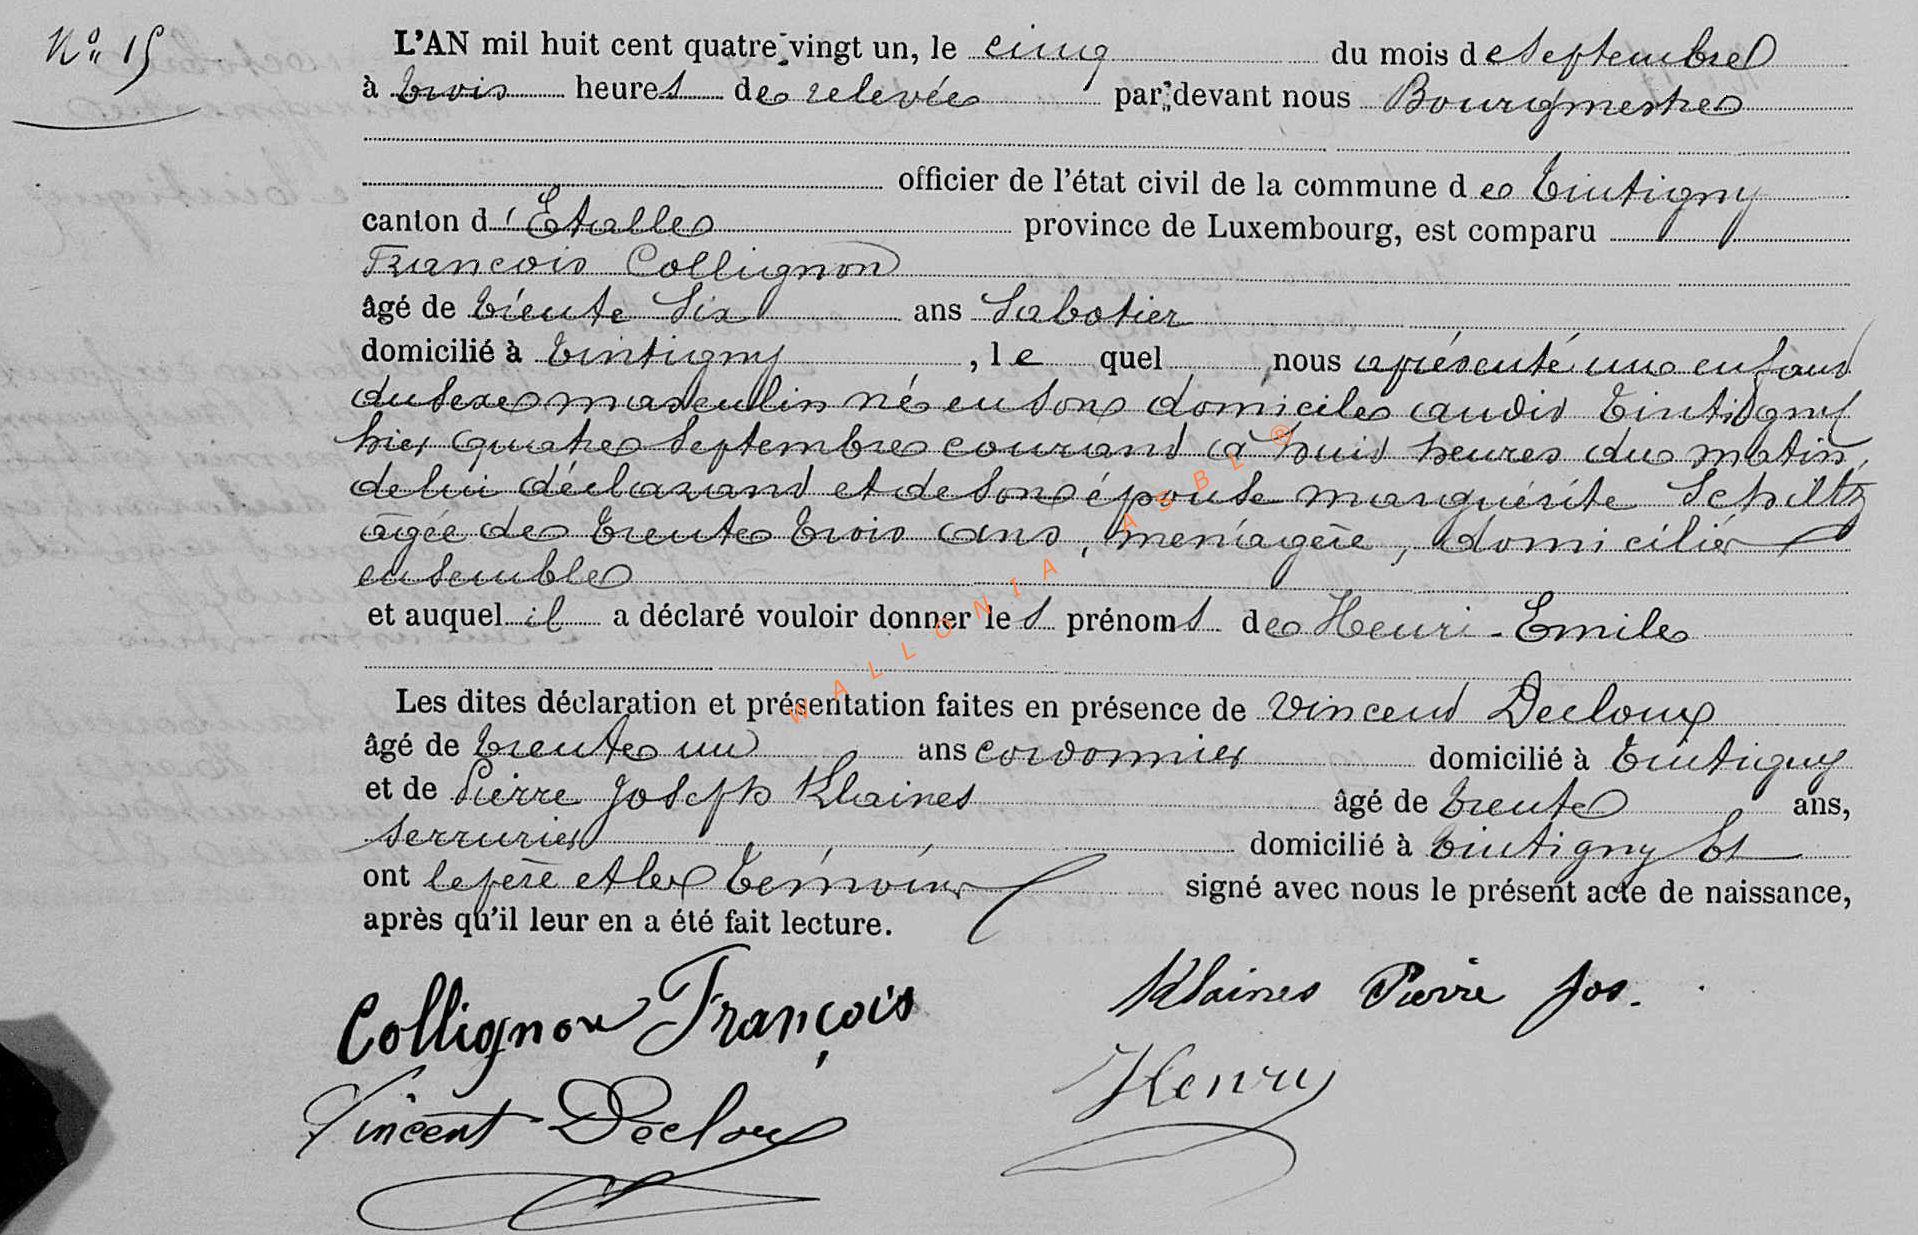 N° 15
L'AN mil huit cent quatre-vingt un, le cinq du mois de Septembre
à trois heures de relevée par-devant nous Bourgmestre
officier de l'état civil de la commune de Tintigny
canton d'Etalle province de Luxembourg, est comparu
François Collignon
âgé de trente Six ans Sabotier
domicilié à Tintigny, lequel nous a présenté un enfant
du sexe masculin né en son domicile audit Tintigny
hier quatre Septembre courant à huit heures du matin,
de lui déclarant et de son épouse marguérite Schiltz
âgée de trente trois ans, menagère, domiciliés
ensemble
et auquel il a déclaré vouloir donner les prénoms de Henri-Emile
Les dites déclaration et présentation faites en présence de Vincent Decloux
âgé de trente un ans cordonnier domicilié à Tintigny
et de Pierre Joseph Klaines âgé de trente ans,
serrurier domicilié à Tintigny Et
ont le père et les témoins signé avec nous le présent acte de naissance,
après qu'il leur en a été fait lecture.
Collignon François
Klaines Pierre Jos.
Vincent Decloux
Henry
WALLONIA ASBL ®